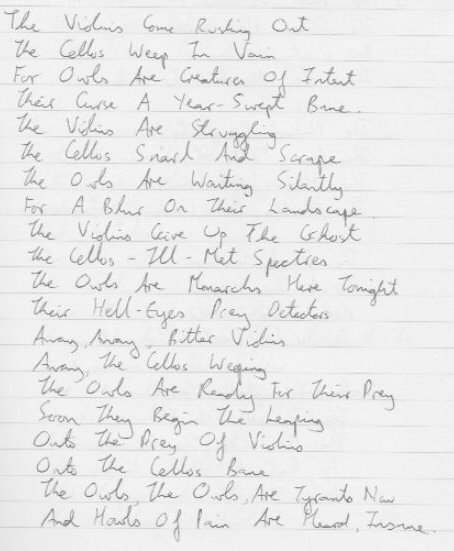 The Violins Come Rushing Out
The Cellos Weep In Vain
For Owls Are Creatures Of Intent
Their Curse A Year-Swept Bane.
The Violins Are Struggling
The Cellos Snarl And Scrape
The Owls Are Waiting Silently
For A Blur On Their Landscape.
The Violins Give Up The Ghost
The Cellos - Ill - Met Spectres
The Owls Are Monarchs Here Tonight
Their Hell-Eyes Prey Detectors
Away, Away, Bitter Violins
Away, The Cellos Weeping
The Owls Are Ready For Their Prey
Soon They Begin The Leaping
Onto The Prey Of Violins
Onto The Cellos Bane
The Owls, The Owls, Are Tyrants Now
And Howls Of Pain Are Heard, Insane.